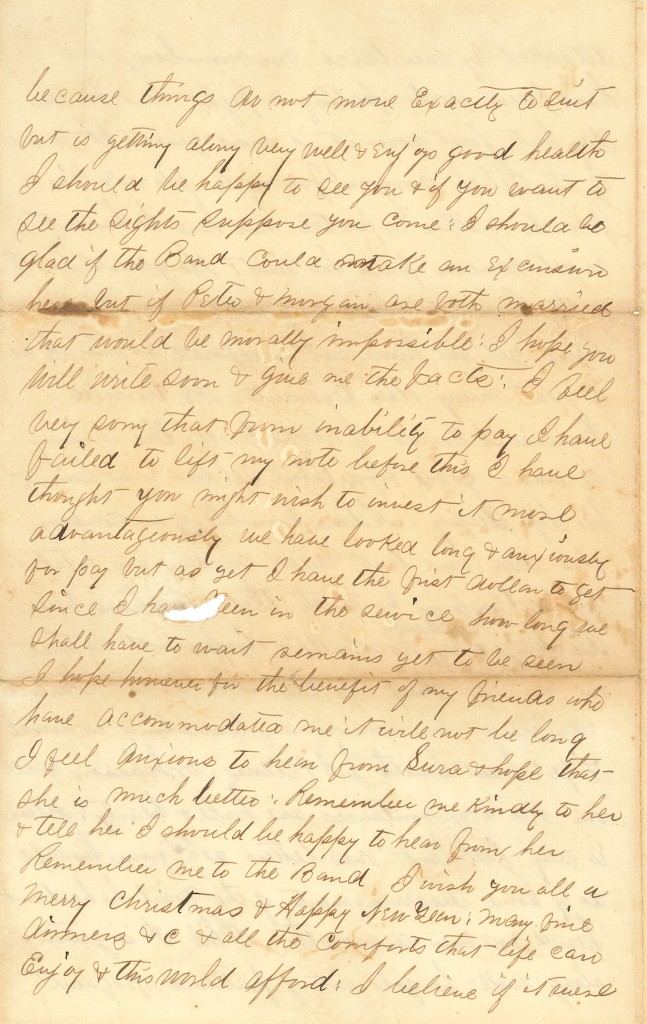 because things do not move Exactly to suit
but is getting along very well & Enjoys good health
I should be happy to see you & if you want to
see the sights suppose you come: I should be
glad if the Band could make an Excursion
here but if Peter & Morgan are both married
that would be morally impossible: I hope you
Will write soon & give me the facts: I feel
very sorry that from inability to pay I have
failed to lift my note before this I have
thought you might wish to invest it more
advantageously we have looked long & anxiously
for pay but as yet I have the first dollar to get
since I have been in the service how long we
shall have to wait remains yet to be seen
I hope however for the benefit of my friends who
have accommodated me it will not be long
I feel Anxious to hear from Sura & hope that
she is much better: Remember me Kindly to her
& tell her I should be happy to hear from her
Remember me to the Band I wish you all a
Merry Christmas & Happy New Year: many fine
dinners & C & all the Comforts that life can
Enjoy & this world afford: I believe if it were